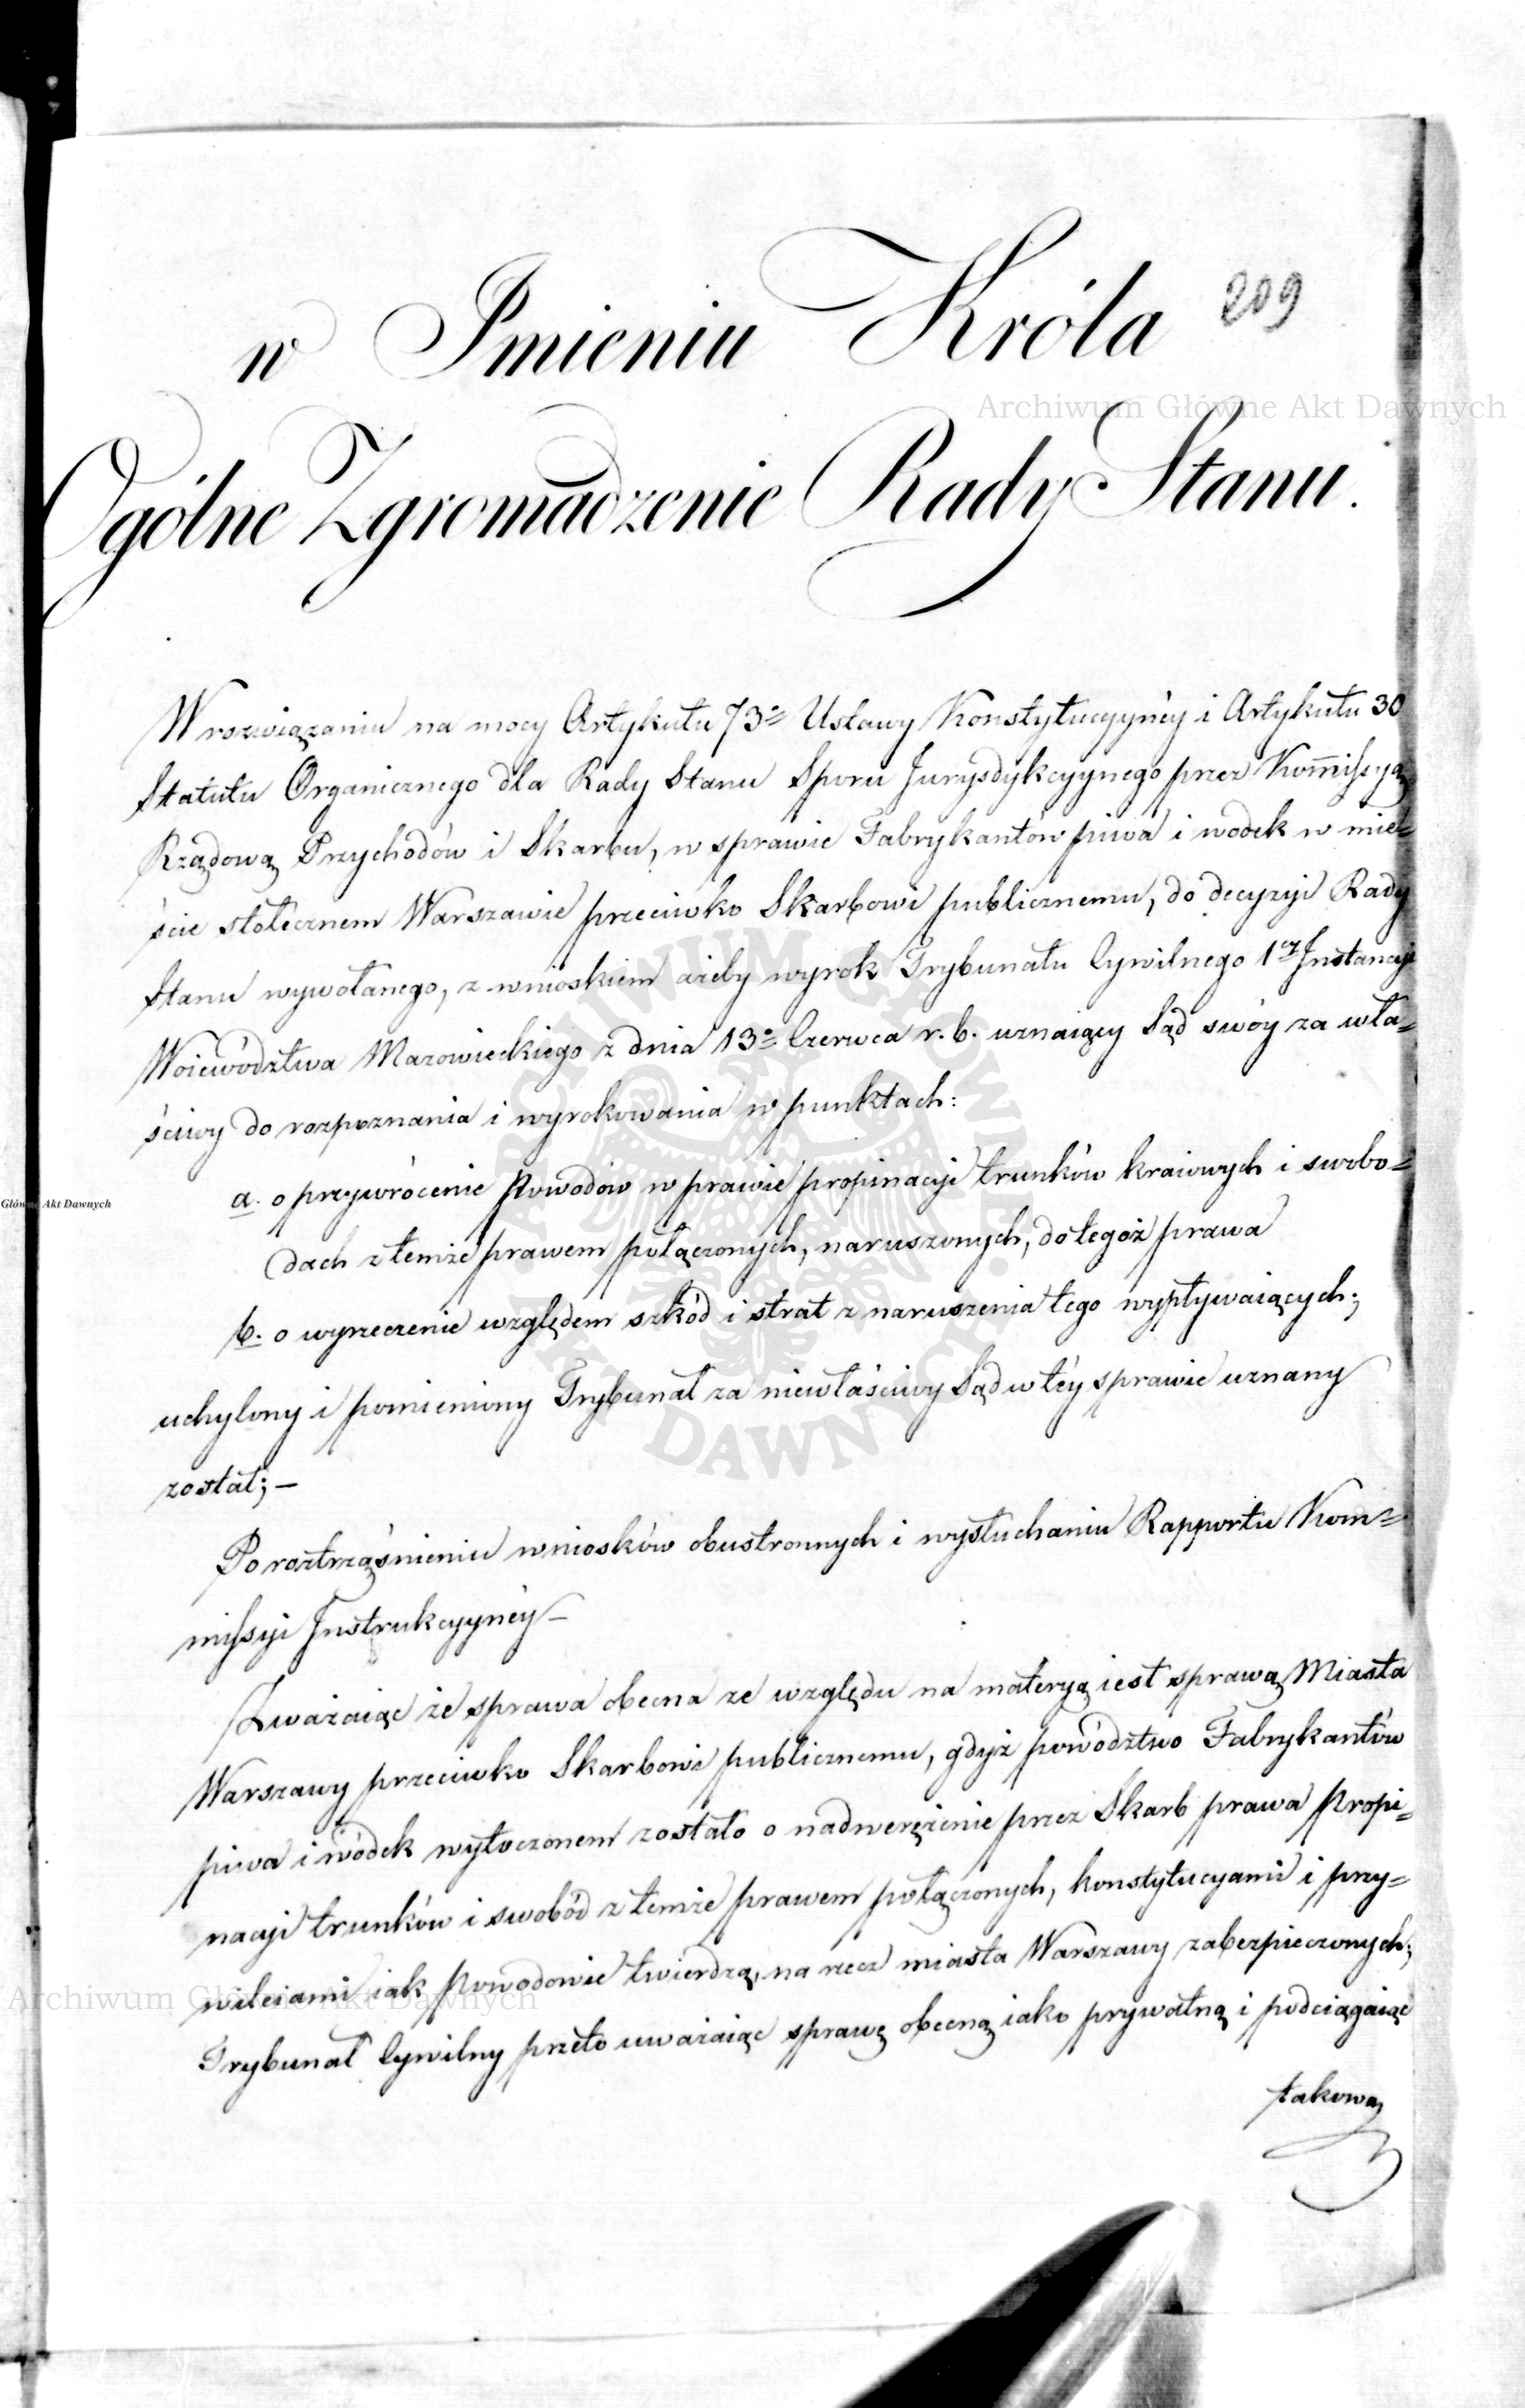 209
w Imieniu Króla
Ogólne Zgromadzenie Rady Stanu.
W rozwiązaniu na mocy Artykułu 73º Ustawy Konstytucyynéy i Artykułu 30
Statutu Organicznego dla Rady Stanu Sporu Jurysdykcyynego przez Kommissyą
Rządową Przychodów i Skarbu, w sprawie Fabrykantów piwa i wodek w mie=
ście stołecznem Warszawie przeciwko Skarbowi publicznemu, do decyzyi Rady
Stanu wywołanego, z wnioskiem ażeby wyrok Trybunału Cywilnego 1éy Instancyi
Woiewództwa Mazowieckiego z dnia 13º Czerwca r. b. uznaiący Sąd swóy za wła=
ściwy do rozpoznania i wyrokowania w punktach:
a. o przywrócenie Powodów w prawie propinacyi trunków kraiowych i swobo=
dach z temże prawem połączonych, naruszonych, do tegoż prawa
b. o wyrzeczenie względem szkód i strat z naruszenia tego wypływaiących;
uchylony i pomieniony Trybunał za niewłaściwy Sąd w téy sprawie uznany
został; –
Po roztrząśnieniu wniosków obustronnych i wysłuchaniu Rapportu Kom=
missyi Instrukcyynéy –
Zważaiąc że sprawa obecna ze względu na materyą iest sprawą Miasta
Warszawy przeciwko Skarbowi publicznemu, gdyż powództwo Fabrykantów
piwa i wódek wytoczonem zostało o nadwerężenie przez Skarb prawa Propi=
nacyi trunków i swobód z temże prawem połączonych, konstytucyami i przy=
wileiami iak Powodowie twierdzą, na rzecz miasta Warszawy zabezpieczonych;
Trybunał Cywilny przeto uważaiąc sprawę obecną iako prywatną i podciągaiąc
takową
Archiwum Główne Akt Dawnych
Główne Akt Dawnych
ARCHIWUM GŁÓWNE AKT DAWNYCH
Archiwum Główne Akt Dawnych